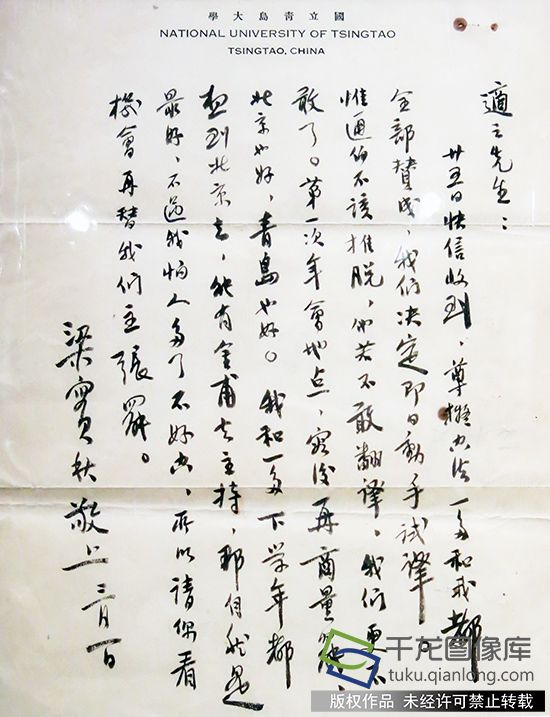 國立青島大學
NATIONAL UNIVERSITY OF TSINGTAO
TSINGTAO, CHINA
適之先生：
廿五日快信收到，尊擬办法一多和我都
全部贊成，我们决定即日動手試譯。
惟通伯不該推脱，他若不敢翻譯，我们更不
敢了。第一次年會地点，容後再商量罷，
北京也好，青島也好。我和一多下学年都
想到北京去，能有金甫去主持，那自然是
最好，不過我怕人多了不好办，所以請你看
機會再替我们主張罷。
梁實秋敬上 三月一日
千龙图像库
tuku.qianlong.com
版权作品 未经许可禁止转载